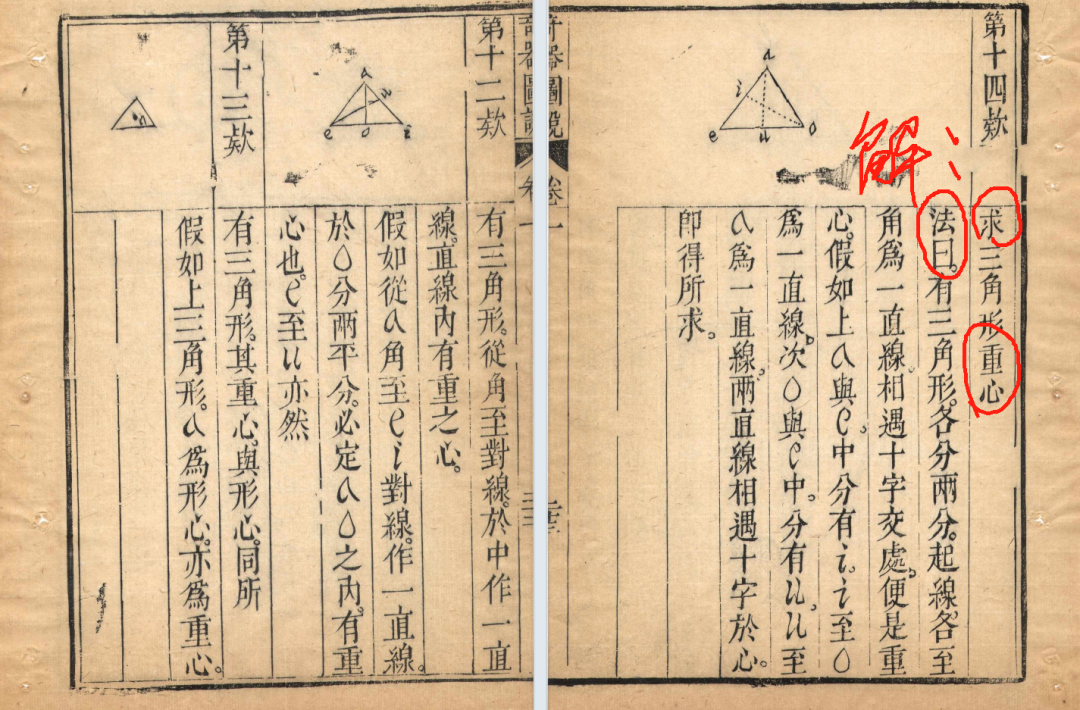 第十四欵
a
i
e
u
o
解：
求三角形重心
法曰。有三角形。各分兩分。起線。各至
角爲一直線。相遇十字交處。便是重
心。假如上a與e。中分有i。i至o
爲一直線。次o與e中。分有u。u至
a爲一直線。兩直線相遇十字於心。
卽得所求。
奇器圖說
卷一
第十二欵
a
u
e
o
i
有三角形。從角至對線。於中作一直
線。直線內有重之心。
假如從a角至e i對線。作一直線。
於o分兩平分。必定a o之內。有重
心也。e至u亦然
第十三欵
a
有三角形。其重心。與形心。同所
假如上三角形。a爲形心。亦爲重心。